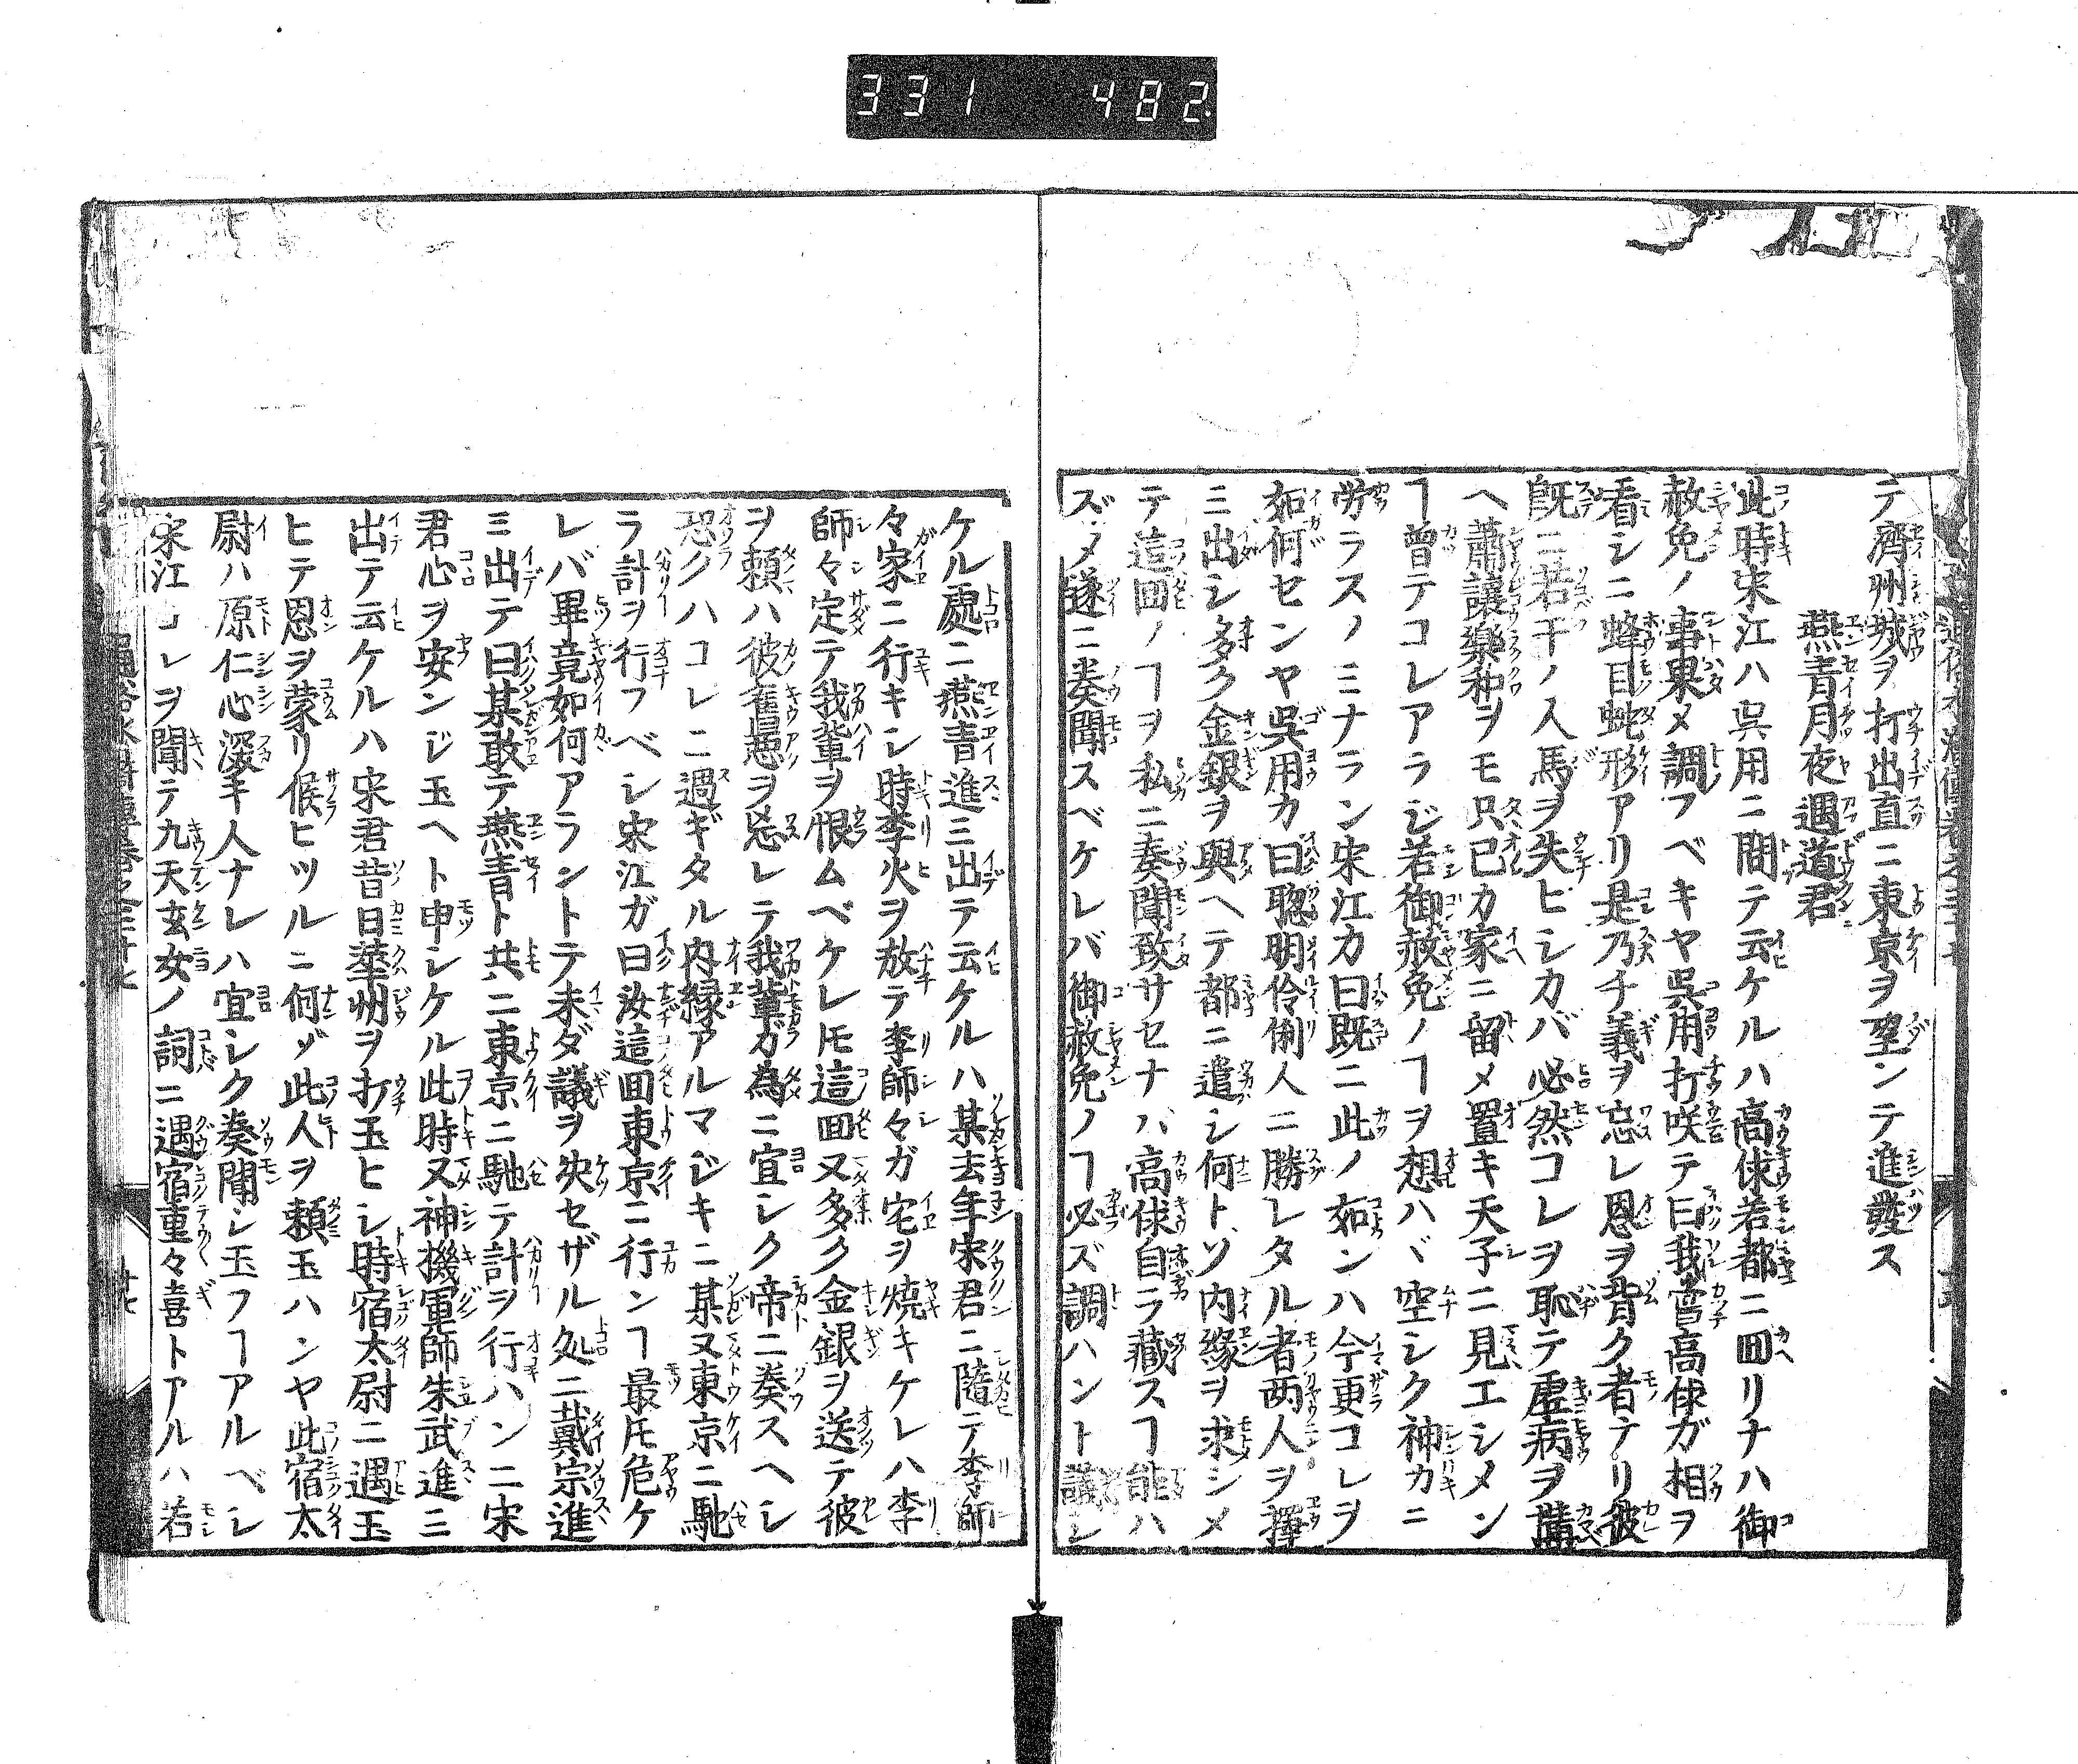 331 482
テ濟州城ヲ打出直ニ東京ヲ望ンテ進發ス
燕青月夜遇道君
此時宋江ハ呉用ニ問テ云ケルハ高俅若都ニ回リナハ御
赦免ノ事果メ調フベキヤ呉用打咲テ曰我嘗高俅ガ相ヲ
看シニ蜂目蛇形アリ是乃チ義ヲ忘レ恩ヲ背ク者テリ彼
既ニ若干ノ人馬ヲ失ヒシカバ必然コレヲ恥テ虚病ヲ搆
ヘ蕭讓樂和ヲモ只己カ家ニ留メ置キ天子ニ見エシメン
ヿ曾テコレアラジ若御赦免ノヿヲ想ハヾ空シク神カニ
勞ラスノミナラン宋江カ曰既ニ此ノ如ンハ今更コレヲ
如何センヤ呉用カ曰聰明伶俐人ニ勝レタル者両人ヲ擇
ミ出シ多ク金銀ヲ與ヘテ都ニ遣シ何トゾ内縁ヲ求シメ
テ這回ノヿヲ私ニ奏聞致サセナバ高俅自ラ藏スヿ能ハ
ズメ遂ニ奏聞スベケレバ御赦免ノヿ必ズ調ハント議シ
ケル處ニ燕青進ミ出テ云ケルハ某去年宋君ニ隨テ李師
々家ニ行キシ時李火ヲ放テ李師々ガ宅ヲ燒キケレハ李
師々定テ我輩ヲ恨ムベケレ𪜈這回又多ク金銀ヲ送テ彼
ヲ頼ハ彼舊惡ヲ忘レテ我輩ガ為ニ宜シク帝ニ奏スヘシ
恐クハコレニ過ギタル内縁アルマジキニ某又東京ニ馳
ラ計ヲ行フベシ宋江ガ曰汝這回東京ニ行ンヿ最𪜈危ケ
レバ畢竟如何アラントテ未ダ議ヲ决セザル処ニ戴宗進
ミ出テ曰某敢テ燕青ト共ニ東京ニ馳テ計ヲ行ハンニ宋
君心ヲ安ンジ玉ヘト申シケル此時又神機軍師朱武進ミ
出テ云ケルハ宋君昔日華州ヲ打玉ヒシ時宿太尉ニ遇玉
ヒテ恩ヲ蒙リ候ヒツルニ何ゾ此人ヲ頼玉ハンヤ此宿太
尉ハ原仁心深キ人ナレハ宜シク奏聞シ玉フヿアルベシ
宋江コレヲ聞テ九天玄女ノ詞ニ遇宿重々喜トアルハ若